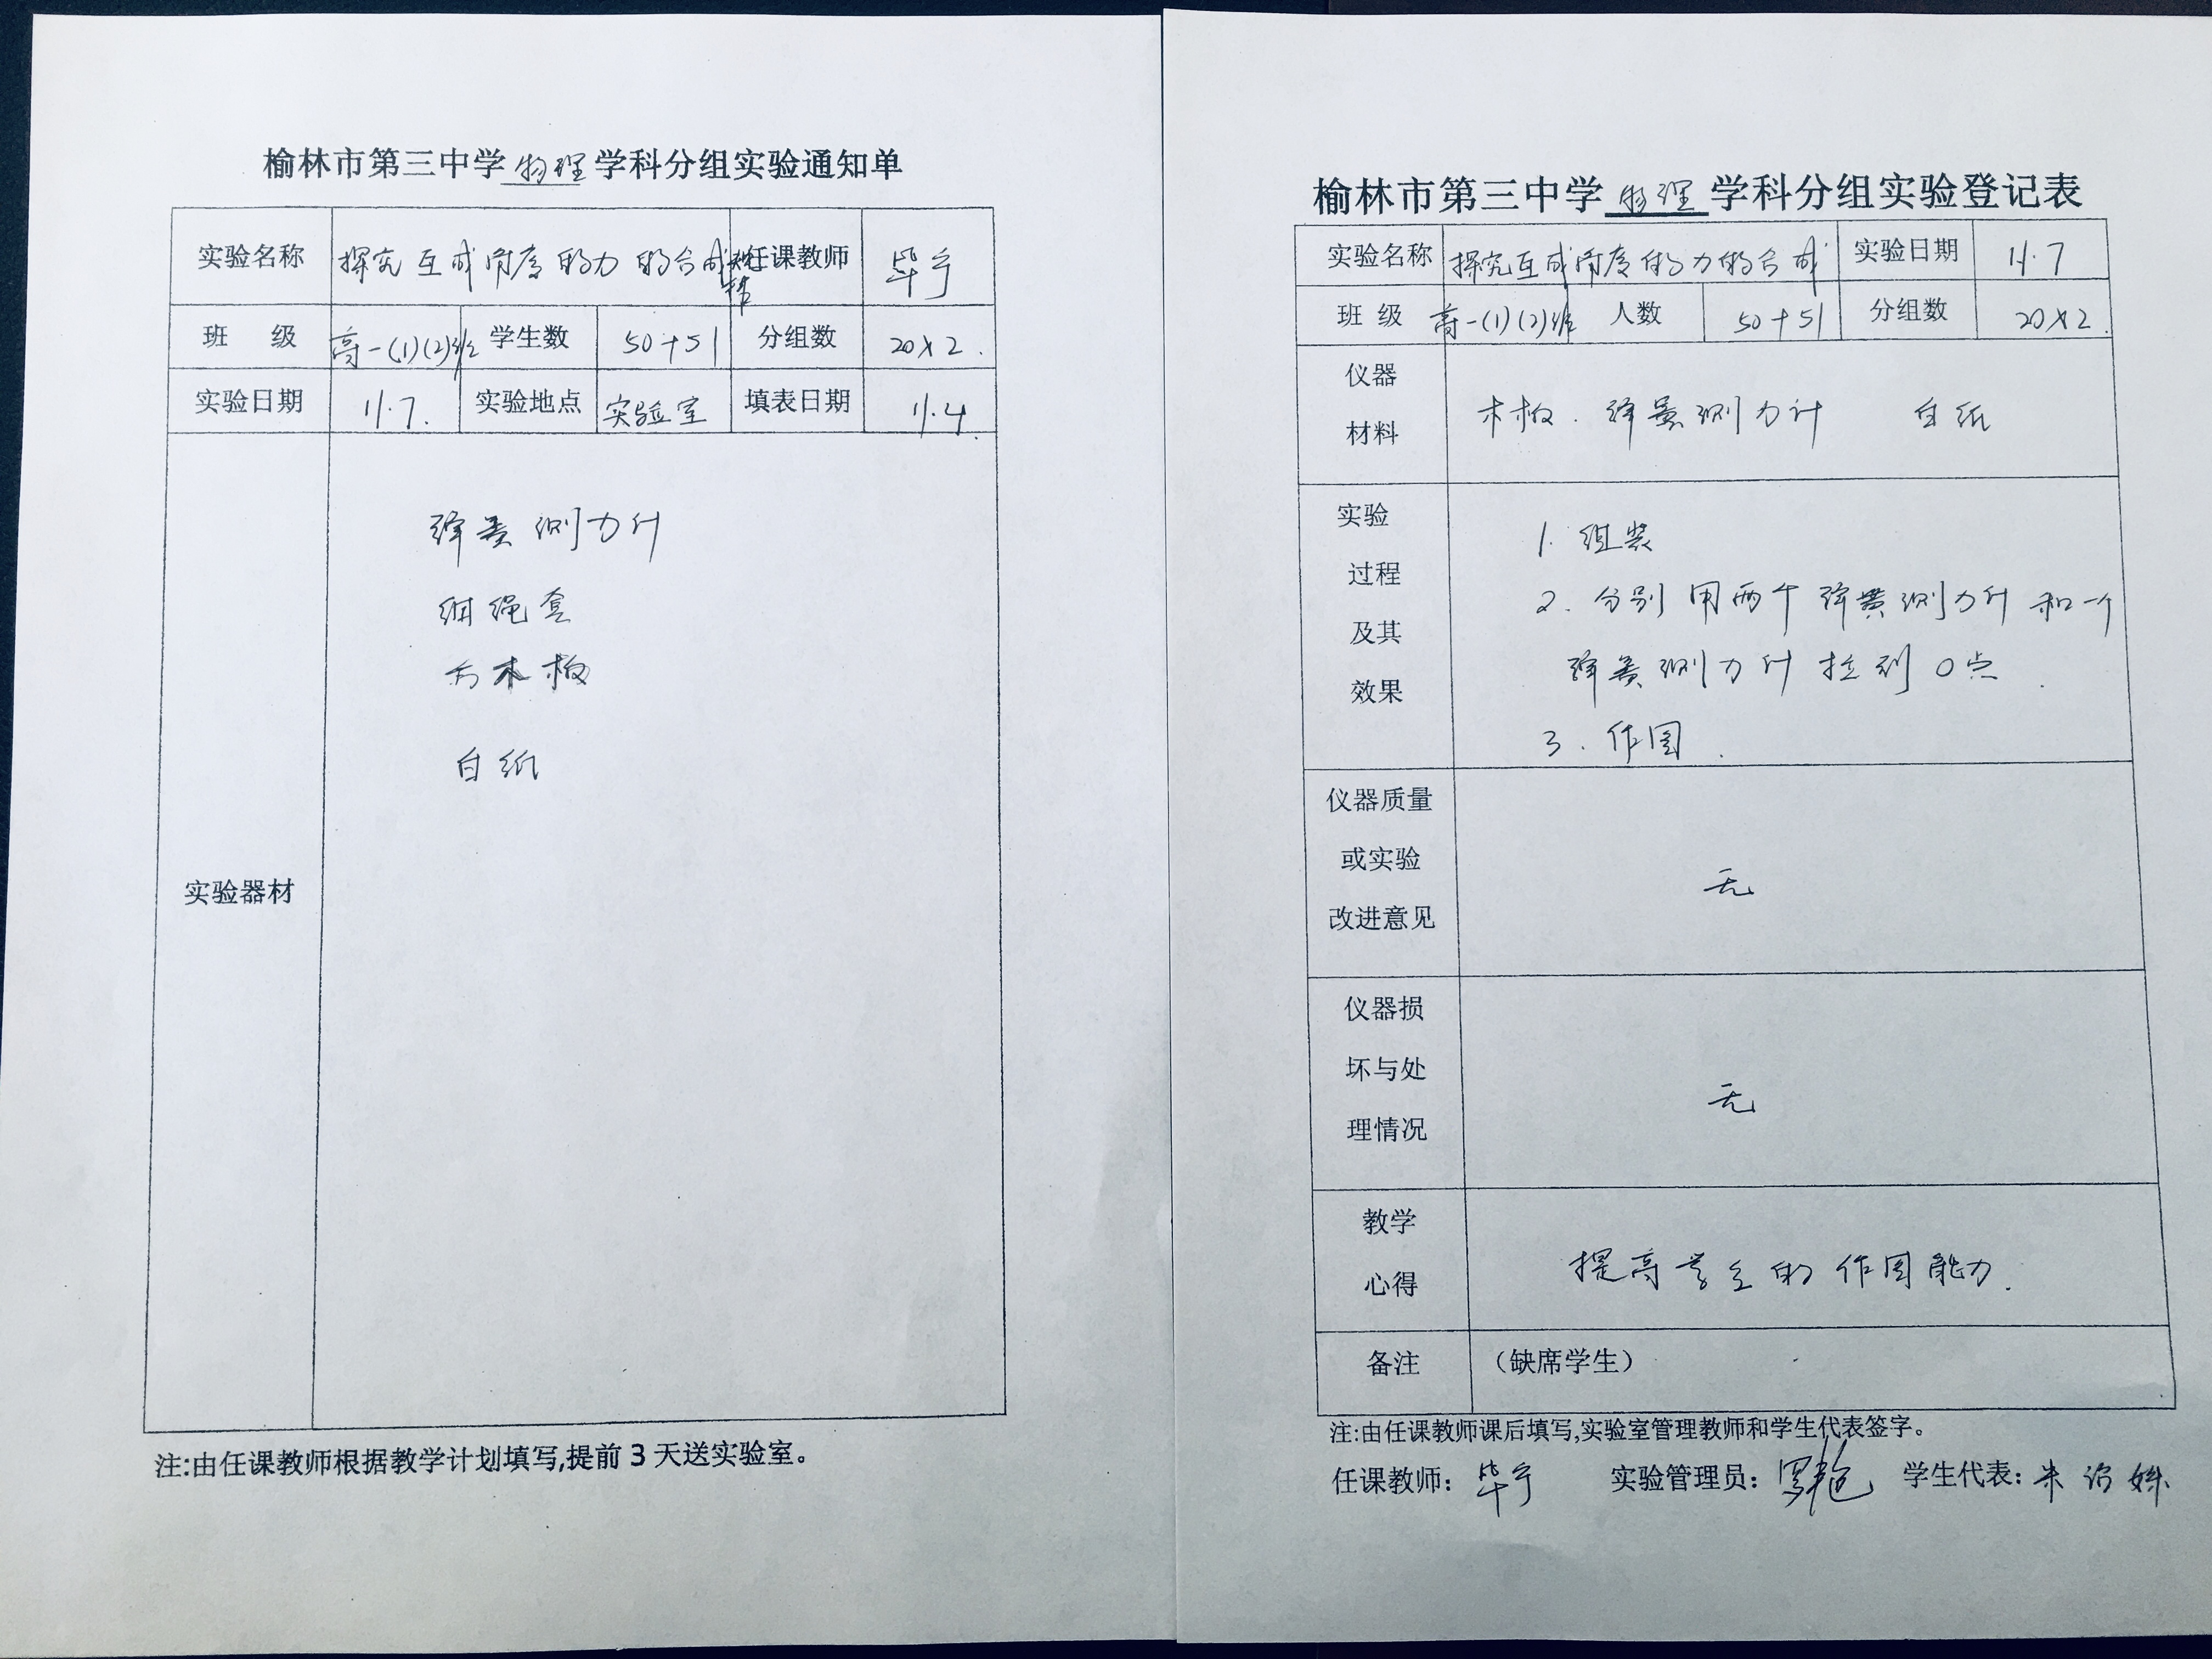 榆林市第三中学物理学科分组实验通知单
实验名称 探究互成角度的力的合成规律 任课教师 毕宁
班 级 高一(1)(2)班 学生数 50+51 分组数 20×2.
实验日期 11.7. 实验地点 实验室 填表日期 11.4.
实验器材
弹簧测力计
细绳套
方木板
白纸
注:由任课教师根据教学计划填写,提前3天送实验室。
榆林市第三中学物理学科分组实验登记表
实验名称 探究互成角度的力的合成 实验日期 11.7
班 级 高一(1)(2)班 人数 50+51 分组数 20×2.
仪器
材料
木板.弹簧测力计 白纸
实验
过程
及其
效果
1.组装
2.分别用两个弹簧测力计和一个
弹簧测力计拉到O点.
3.作图.
仪器质量
或实验
改进意见
无
仪器损
坏与处
理情况
无
教学
心得
提高学生的作图能力.
备注 (缺席学生)
注:由任课教师课后填写,实验室管理教师和学生代表签字。
任课教师:毕宁 实验管理员: 学生代表:朱